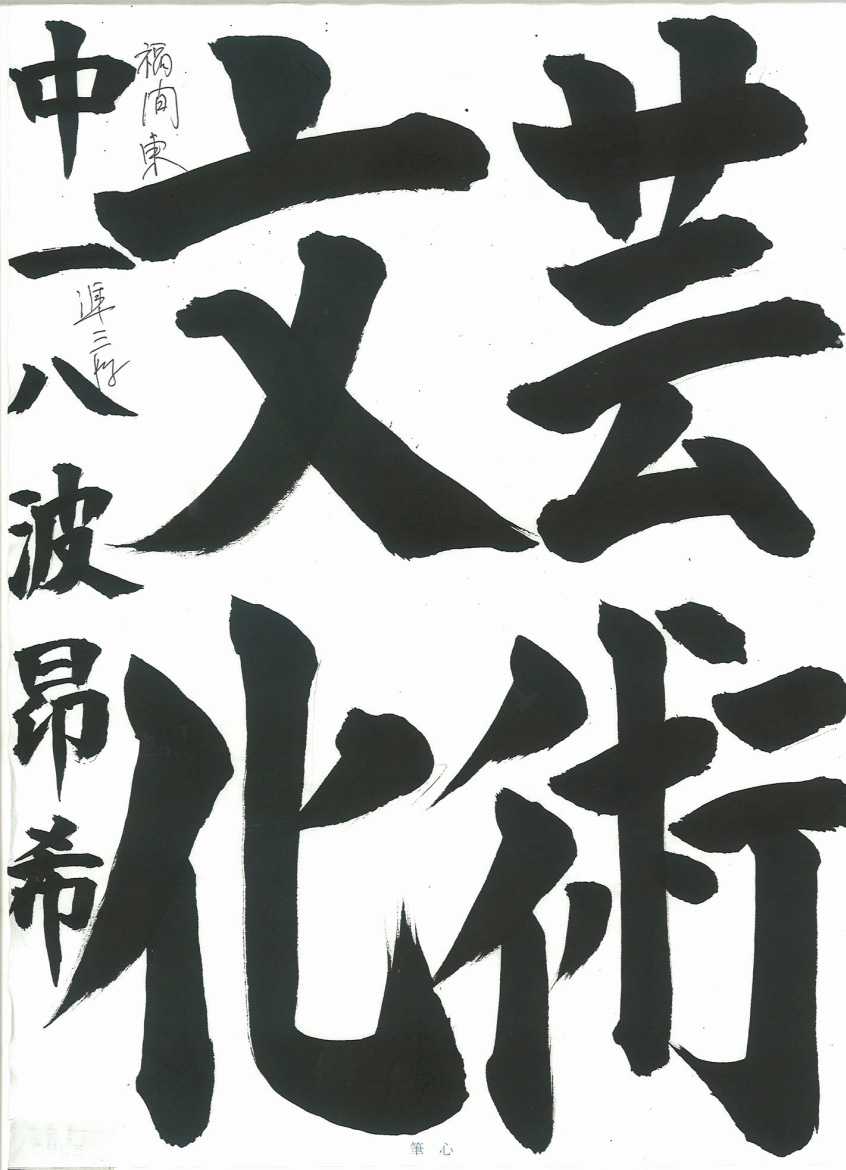 芸術
文化
福间東
中一 八波昂希
準三段
筆心